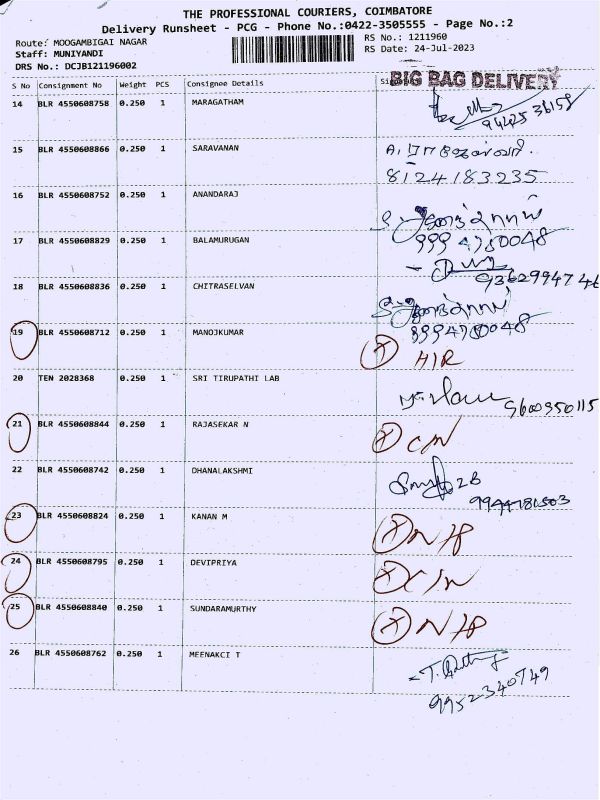 THE PROFESSIONAL COURIERS, COIMBATORE
Delivery Runsheet - PCG - Phone No.:0422-3505555 - Page No.:2
Route: MOOGAMBIGAI NAGAR RS No.: 1211960
Staff: MUNIYANDI RS Date: 24-Jul-2023
DRS No.: DCJB121196002
BIG BAG DELIVERY
S No Consignment No Weight PCS Consignee Details
14 BLR 4550608758 0.250 1 MARAGATHAM
15 BLR 4550608866 0.250 1 SARAVANAN
8124183235
16 BLR 4550608752 0.250 1 ANANDARAJ
9994780048
17 BLR 4550608829 0.250 1 BALAMURUGAN
9362994746
18 BLR 4550608836 0.250 1 CHITRASELVAN
9994780048
19 BLR 4550608712 0.250 1 MANOJKUMAR
20 TEN 2028368 0.250 1 SRI TIRUPATHI LAB
9600350115
21 BLR 4550608844 0.250 1 RAJASEKAR N
22 BLR 4550608742 0.250 1 DHANALAKSHMI
23 BLR 4550608824 0.250 1 KANAN M
24 BLR 4550608795 0.250 1 DEVIPRIYA
25 BLR 4550608840 0.250 1 SUNDARAMURTHY
26 BLR 4550608762 0.250 1 MEENAKCI T
9952340749